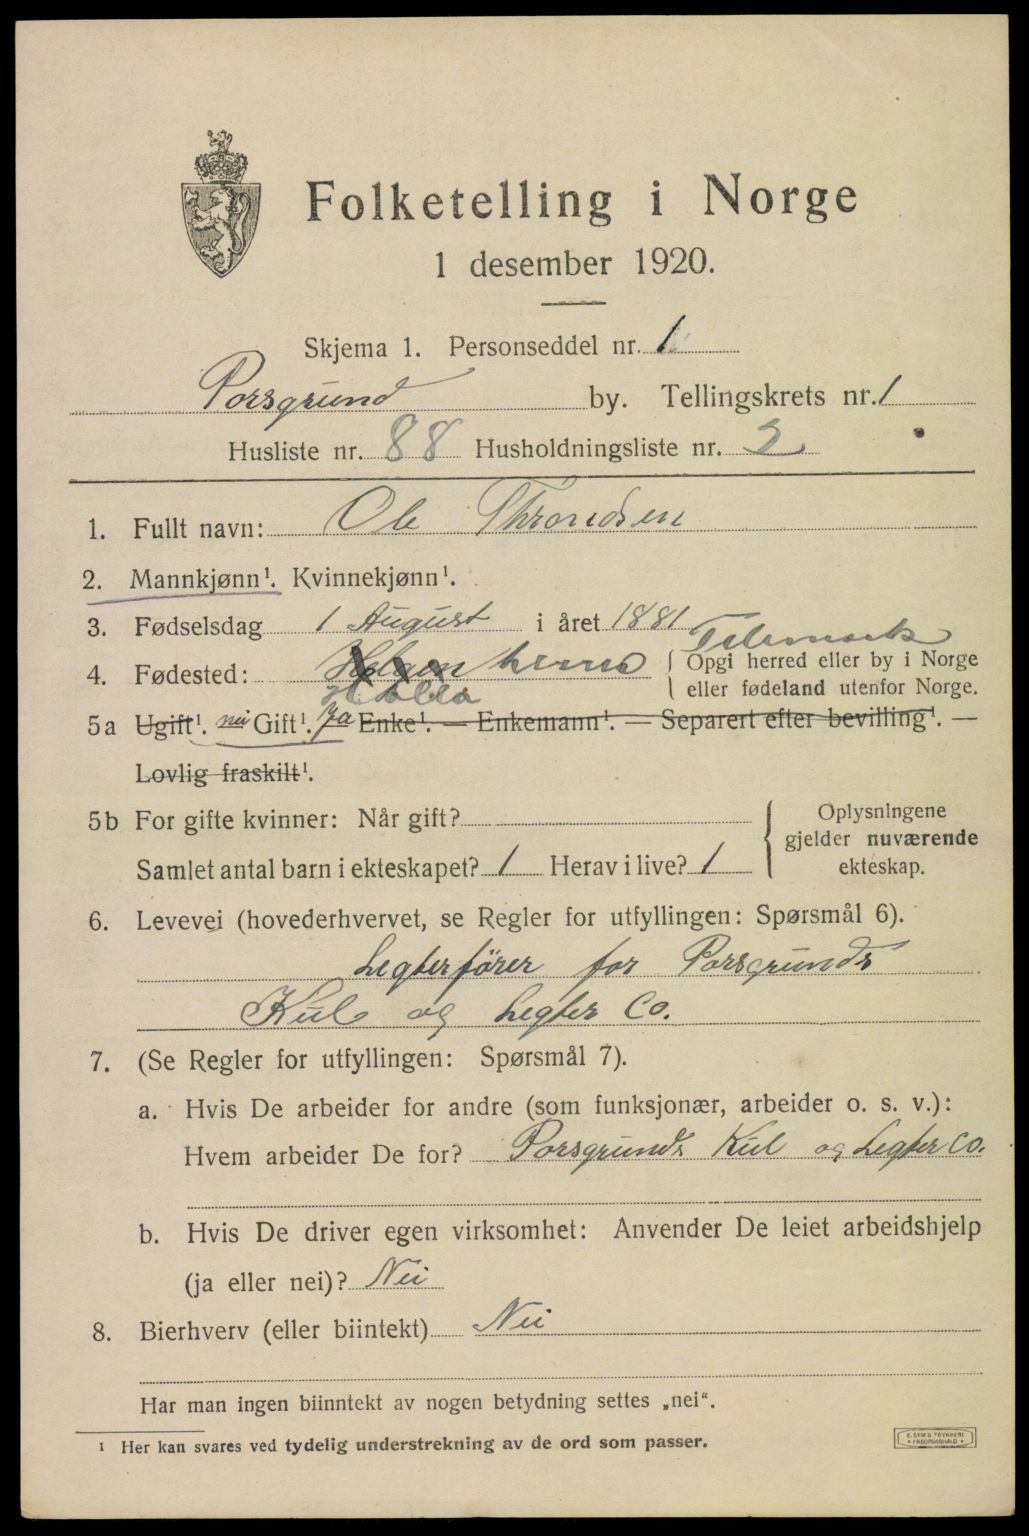 Folketelling i Norge
1 desember 1920.
Skjema 1. Personseddel nr. 1
Porsgrund by. Tellingskrets nr. 1
Husliste nr. 88 Husholdningsliste nr. 2
1. Fullt navn: Ole Throndsen
2. Mannkjønn¹. Kvinnekjønn¹.
3. Fødselsdag 1 August i året 1881
Telemark
4. Fødested: Holden herred { Opgi herred eller by i Norge
Holla eller fødeland utenfor Norge.
5a Ugift¹. nei Gift¹. Ja Enke¹. — Enkemann¹. — Separert efter bevilling¹. —
Lovlig fraskilt¹.
5b For gifte kvinner: Når gift? { Oplysningene
gjelder nuværende
Samlet antal barn i ekteskapet? 1 Herav i live? 1 ekteskap.
6. Levevei (hovederhvervet, se Regler for utfyllingen: Spørsmål 6).
Legterfører for Porsgrunds
Kul og Legter Co.
7. (Se Regler for utfyllingen: Spørsmål 7).
a. Hvis De arbeider for andre (som funksjonær, arbeider o. s. v.):
Hvem arbeider De for? Porsgrunds Kul og Legter Co.
b. Hvis De driver egen virksomhet: Anvender De leiet arbeidshjelp
(ja eller nei)? Nei
8. Bierhverv (eller biintekt) Nei
Har man ingen biinntekt av nogen betydning settes „nei“.
¹ Her kan svares ved tydelig understrekning av de ord som passer.
E. SEM'S TRYKKERI
FREDRIKSHALD